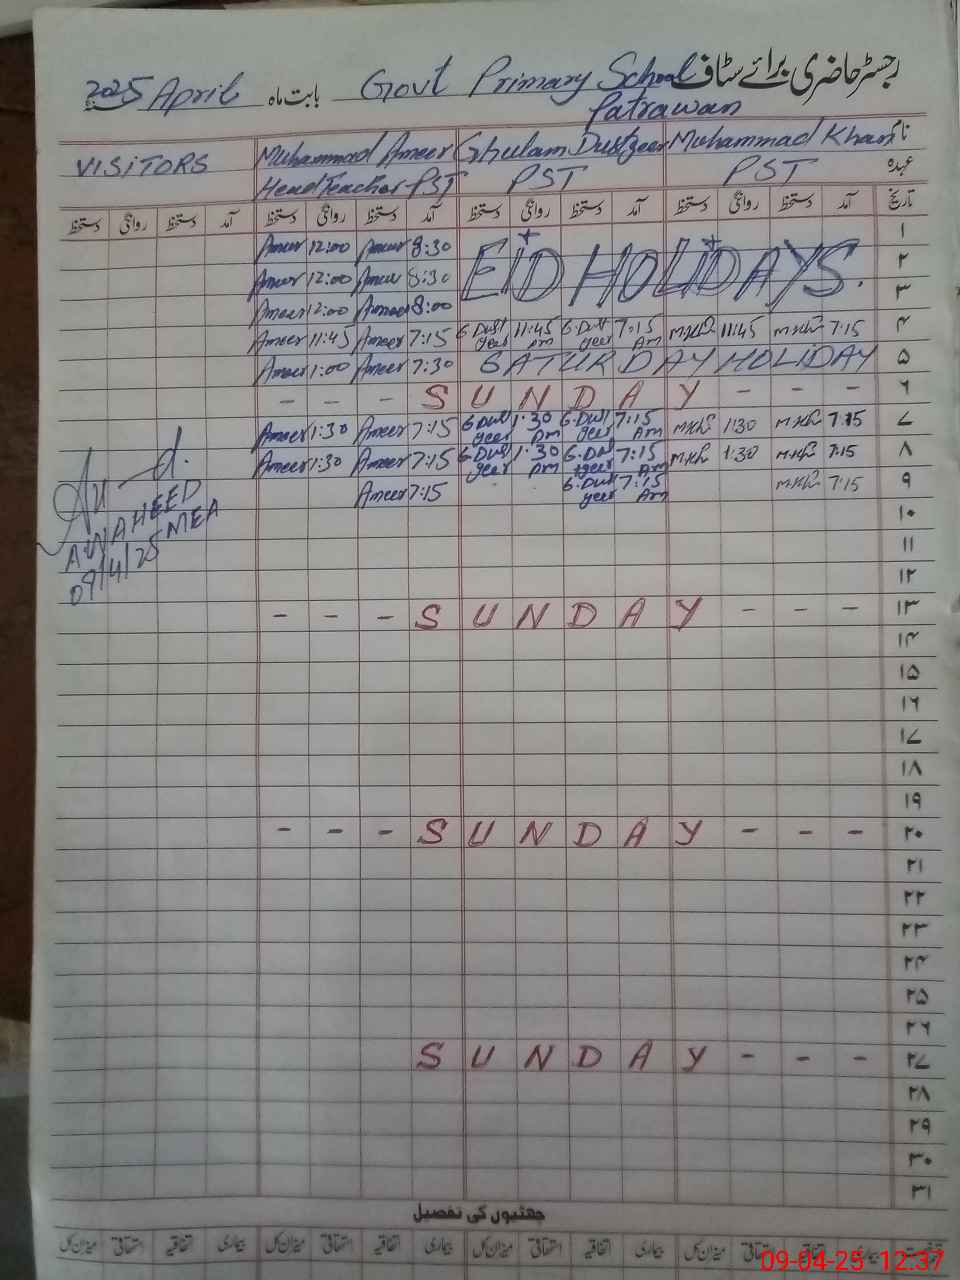 رجسٹر حاضری برائے سٹاف Govt Primary School Patrawan بابت ماہ April 2025
نام Muhammad Khan Ghulam Dustgeer Muhammad Ameer VISITORS
عہدہ PST PST Head Teacher PST
تاریخ آمد دستخط روانگی دستخط آمد دستخط روانگی دستخط آمد دستخط روانگی دستخط آمد دستخط روانگی دستخط
۱ 8:30 Ameer 12:00 Ameer
۲ EID HOLIDAYS. 8:30 Ameer 12:00 Ameer
۳ 8:00 Ameer 12:00 Ameer
۴ 7:15 M.Kh 11:45 M.Kh 7:15 Am G.Dust geer 11:45 Am G.Dust geer 7:15 Ameer 11:45 Ameer
۵ SATURDAY HOLIDAY 7:30 Ameer 1:00 Ameer
۶ - - - SUNDAY - - -
۷ 7:15 M.Kh 1:30 M.Kh 7:15 Am G.Dust geer 1:30 Pm G.Dust geer 7:15 Ameer 1:30 Ameer
۸ 7:15 M.Kh 1:30 M.Kh 7:15 Am G.Dust geer 1:30 Pm G.Dust geer 7:15 Ameer 1:30 Ameer
۹ 7:15 M.Kh 7:15 Am G.Dust geer 7:15 Ameer
A.WAHEED
MEA
09/4/25
۱۰
۱۱
۱۲
۱۳ - - - SUNDAY - - -
۱۴
۱۵
۱۶
۱۷
۱۸
۱۹
۲۰ - - - SUNDAY - - -
۲۱
۲۲
۲۳
۲۴
۲۵
۲۶
۲۷ SUNDAY - - -
۲۸
۲۹
۳۰
۳۱
چھٹیوں کی تفصیل
بیماری اتفاقیہ استحقاقی میزان کل بیماری اتفاقیہ استحقاقی میزان کل بیماری اتفاقیہ استحقاقی میزان کل بیماری اتفاقیہ استحقاقی میزان کل
09-04-25 12:37